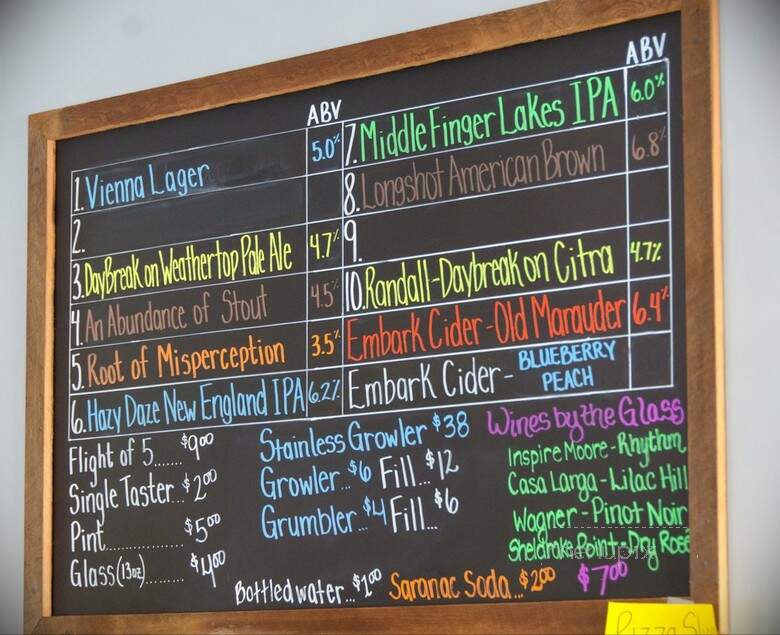 ABV
1. Vienna Lager 5.0%
2.
3. DayBreak on Weathertop Pale Ale 4.7%
4. An Abundance of Stout 4.5%
5. Root of Misperception 3.5%
6. Hazy Daze New England IPA 6.2%
ABV
7. Middle Finger Lakes IPA 6.0%
8. Longshot American Brown 6.8%
9.
10. Randall-Daybreak on Citra 4.7%
Embark Cider-Old Marauder 6.4%
Embark Cider- BLUEBERRY
PEACH
Flight of 5...... $9.00
Single Taster.. $2.00
Pint.............. $5.00
Glass (13oz)........ $4.00
Stainless Growler $38
Growler...$6 Fill...$12
Grumbler...$4 Fill...$6
Wines by the Glass
Inspire Moore-Rhythm
Casa Larga-Lilac Hill
Wagner-Pinot Noir
Sheldrake Point-Dry Rosé
$7.00
Bottled water...$1.00 Saranac Soda...$2.00
Pizza